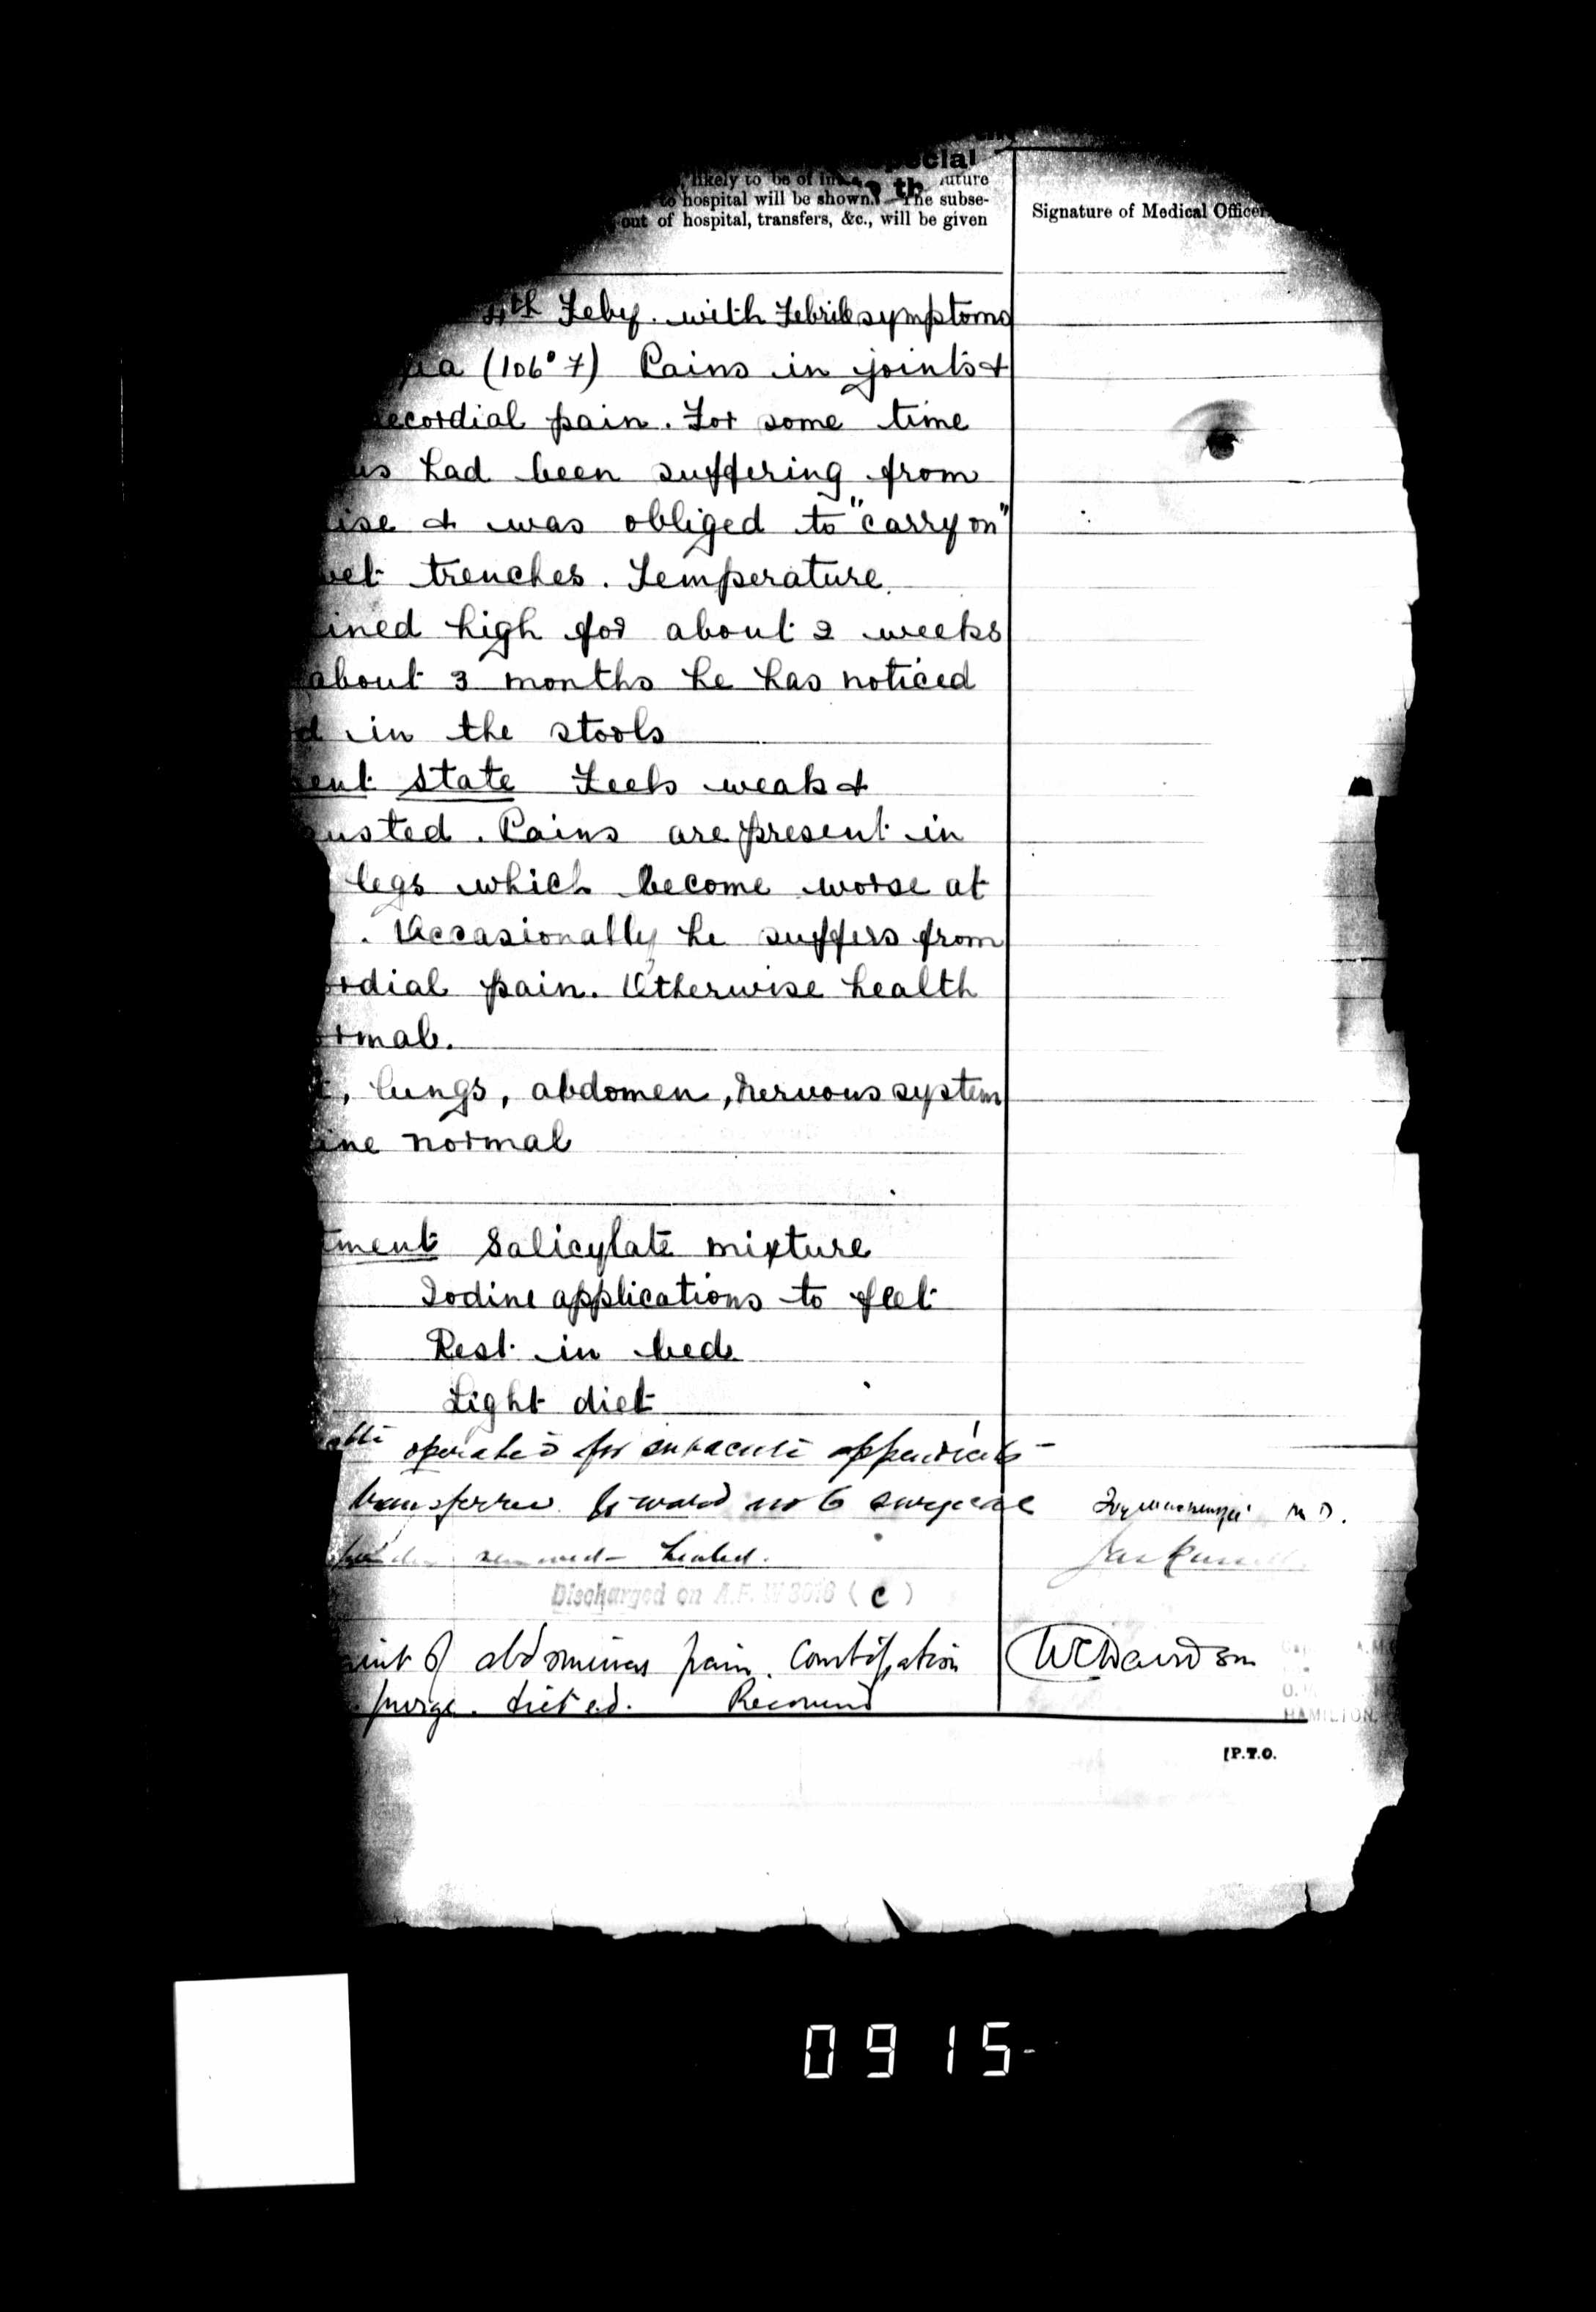 special
likely to be of future
to hospital will be shown. The subse-
out of hospital, transfers, &c., will be given
Signature of Medical Officer
4th Feby. with Febrile symptoms
(106°7) Pains in joints &
ecordial pain. For some time
us had been suffering from
ise & was obliged to "carry on"
wet trenches. Temperature
ined high for about 2 weeks
about 3 months he has noticed
d in the stools
ent state Feels weak &
usted. Pains are present in
legs which become worse at
. Occasionally he suffers from
rdial pain. Otherwise health
rmal.
, lungs, abdomen, nervous system
ine normal
tment Salicylate mixture
Iodine applications to feet
Rest in bed
Light diet
operated for subacute appendicitis -
transferred to ward no 6 surgical
M D.
removed - healed.
Jas Russell
Discharged on A.F. W 3016 (C)
aint of abdominal pain. Constipation
WEDavidson
purge. dieted. Recovered
HAMILTON.
[P.T.O.
0915-